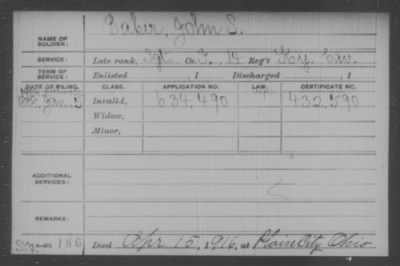 Zaber, John S.
NAME OF SOLDIER:
SERVICE: Late rank, Sgt. Co. F, 14 Reg't Ky. Cav.
TERM OF SERVICE: Enlisted , 1 Discharged , 1
DATE OF FILING. CLASS. APPLICATION NO. LAW. CERTIFICATE NO.
Jan. 5 Invalid, 634,490 432,590
Widow,
Minor,
ADDITIONAL SERVICES:
REMARKS:
Died Apr 15, 1916, at Plain City Ohio